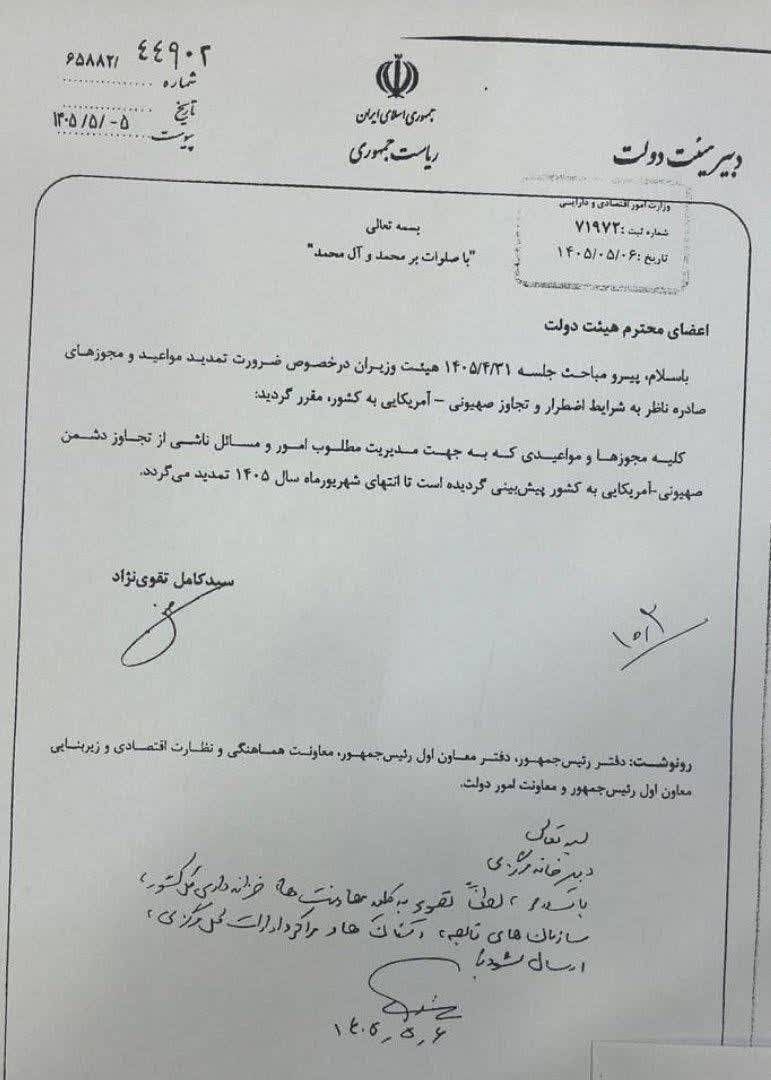 ۶۵۸۸۲/ ۴۴۹۰۲
شماره
تاریخ
۱۴۰۵/۵/-۵
پیوست
جمهوری اسلامی ایران
ریاست جمهوری
دبیر هیئت دولت
وزارت امور اقتصادی و دارایی
شماره ثبت: ۷۱۹۷۲
تاریخ: ۱۴۰۵/۰۵/۰۶
بسمه تعالی
"با صلوات بر محمد و آل محمد"
اعضای محترم هیئت دولت
باسلام، پیرو مباحث جلسه ۱۴۰۵/۴/۳۱ هیئت وزیران درخصوص ضرورت تمدید مواعید و مجوزهای
صادره ناظر به شرایط اضطرار و تجاوز صهیونی – آمریکایی به کشور، مقرر گردید:
کلیه مجوزها و مواعیدی که به جهت مدیریت مطلوب امور و مسائل ناشی از تجاوز دشمن
صهیونی-آمریکایی به کشور پیش‌بینی گردیده است تا انتهای شهریورماه سال ۱۴۰۵ تمدید می‌گردد.
سیدکامل تقوی‌نژاد
رونوشت: دفتر رئیس‌جمهور، دفتر معاون اول رئیس‌جمهور، معاونت هماهنگی و نظارت اقتصادی و زیربنایی
معاون اول رئیس‌جمهور و معاونت امور دولت.
بسمه تعالی
دبیرخانه مرکزی
با سلام، لطفاً تصویر به کلیه معاونت ها، خزانه داری کل کشور،
سازمان های تابعه، استان ها و مراکز و ادارات کل مرکزی،
ارسال شود
۱۴۰۵,۵,۶